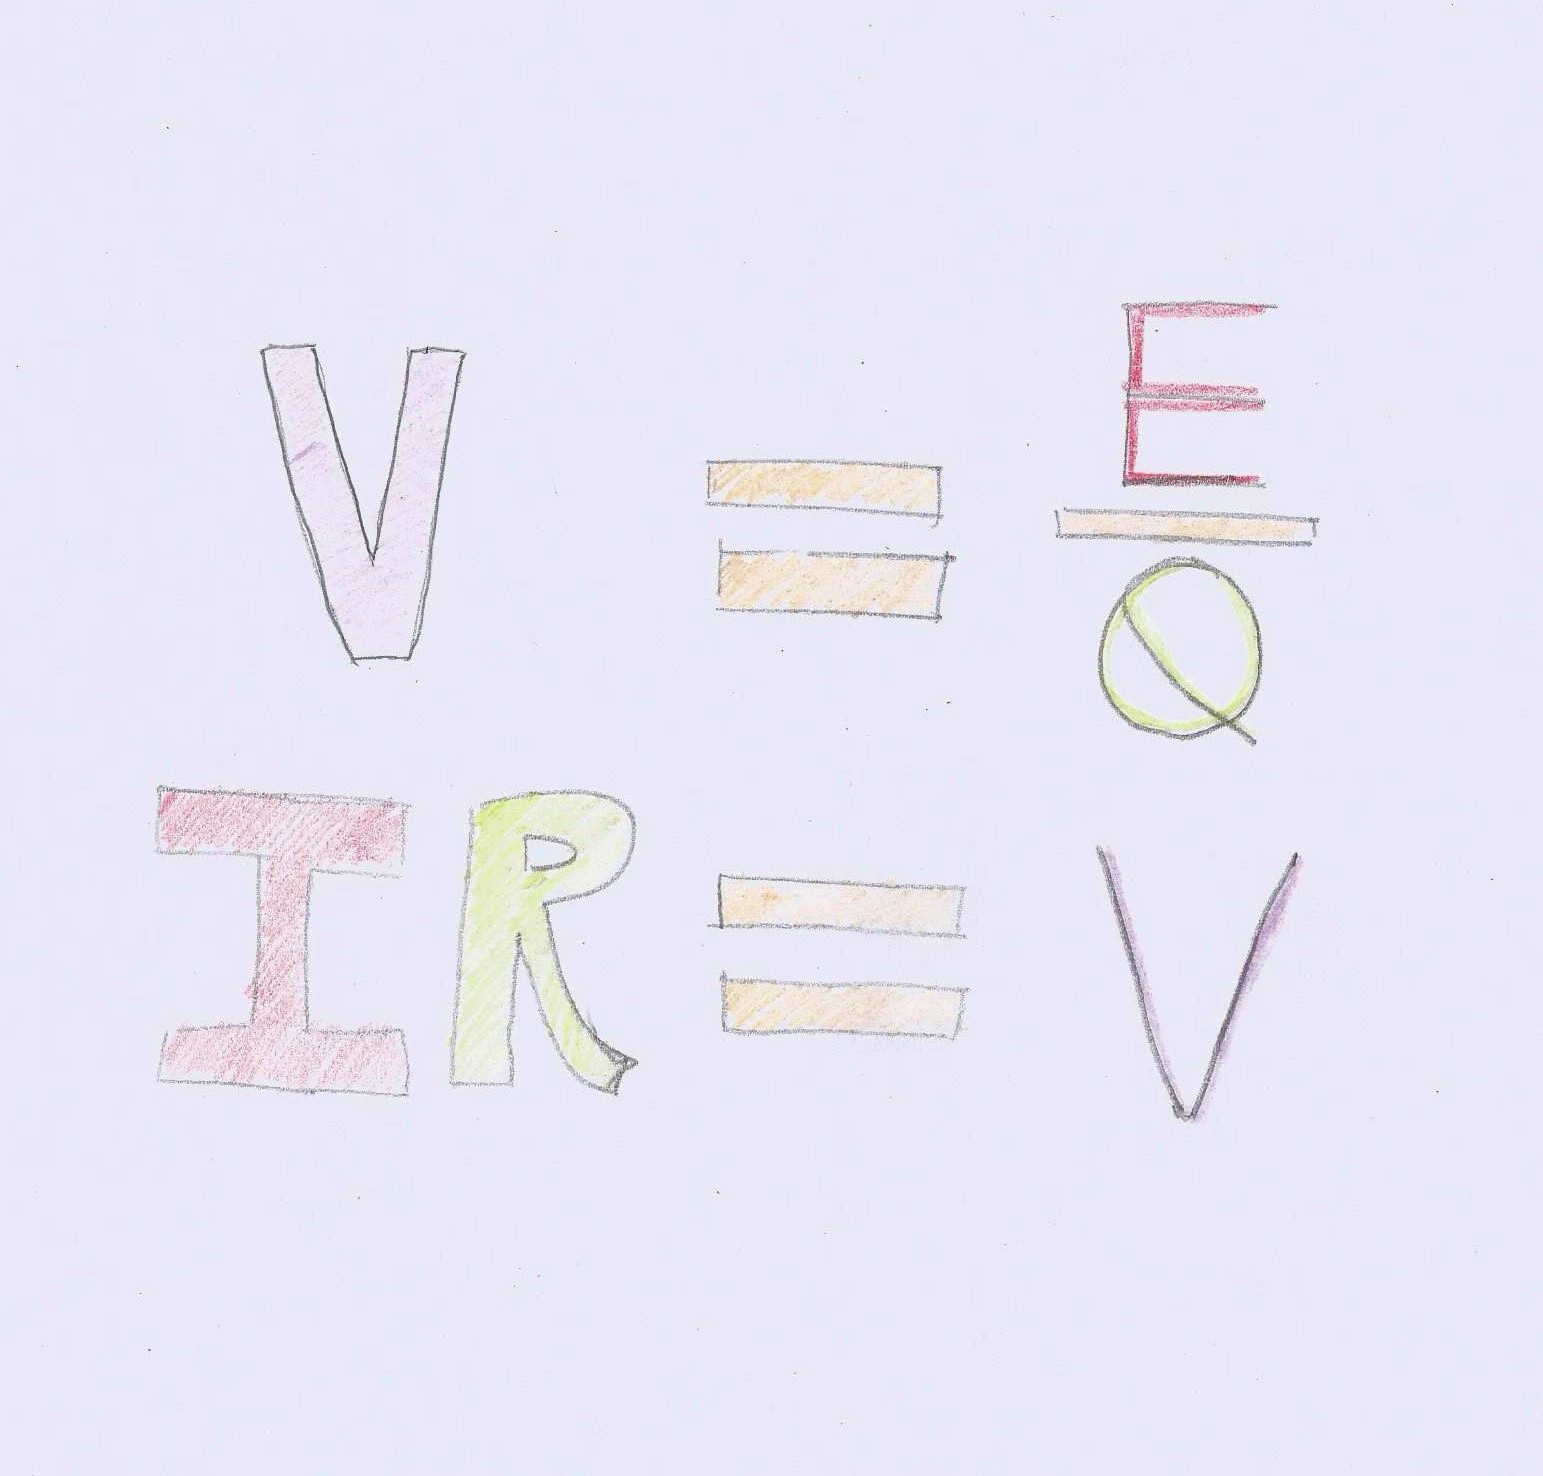 V = E/Q
IR = V